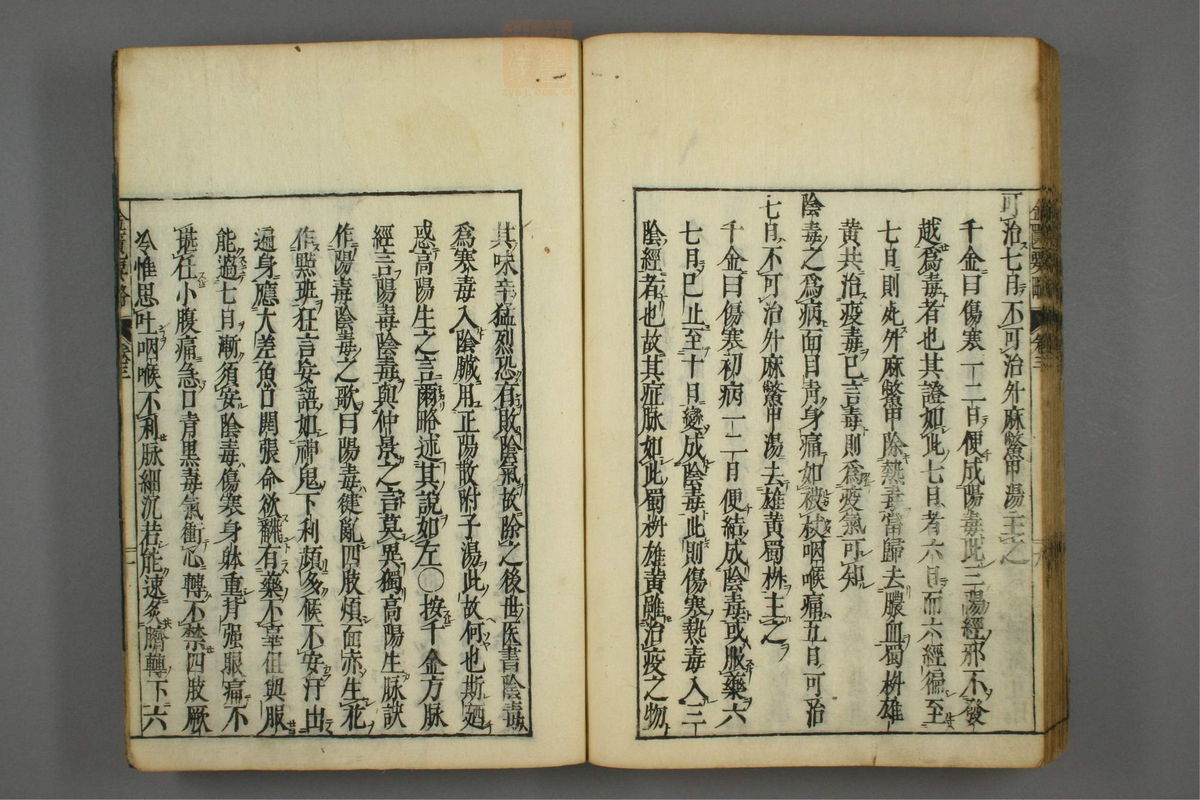 可治七日不可治升麻鱉甲湯主之
千金曰傷寒一二日便成陽毒此三陽經邪不發
越為毒者也其證如此七日者六日而六經徧至
七日則死升麻鱉甲除熱毒當歸去膿血蜀椒雄
黄共治疫毒已言毒則為疫氣可知
陰毒之為病面目青身痛如被杖咽喉痛五日可治
七日不可治升麻鱉甲湯去雄黄蜀椒主之
千金曰傷寒初病一二日便結成陰毒或服藥六
七日已上至十日變成陰毒此則傷寒熱毒入三
陰經者也故其症脉如此蜀椒雄黄雖治疫之物
其味辛猛烈恐有敗陰氣故除之後世医書陰毒
為寒毒入陰臓用正陽散附子湯此故何也斯廼
惑高陽生之言爾略述其說如左〇按千金方脉
經言陽毒陰毒與仲景之言莫異獨高陽生脉訣
作陽毒陰毒之歌曰陽毒健亂四肢煩面赤生花
作㸃班狂言妄語如神鬼下利頻多候不安汗出
遍身應大差魚口開張命欲飜有藥不辜但與服
能過七日漸須安陰毒傷寒身躰重背强眼痛不
堪任小腹痛急口青黒毒氣衝心轉不禁四肢厥
冷惟思吐咽喉不利脉細沉若能速灸臍轉下六
金匱要略
卷三